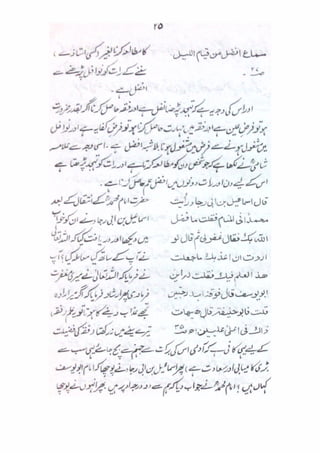 ۲۵
سماع افضل من قیام اللیل
کا مطالعہ کرنا بغیر (کسی استاذ سے)
سننے کے رات کو نوافل پڑھنے سے
افضل ہے۔
اور اس کی وجہ یہ ہے کہ تہجد پڑھنا نفل ہے اور فقہ حاصل کرنا اگر بقدر ضرورت
ہو تو فرض عین ہے اور فقہ میں مہارت حاصل کرنا ہو تو فرض کفایہ ہے اور نوافل
میں مشغول ہونے سے فرض میں مشغول ہونا بلاشبہ افضل ہے۔ اسی وجہ سے علامہ
شامی نے لکھا ہے کہ جو شخص دن کو مطالعہ کرتا ہے اور رات کو تہجد پڑھتا ہے
اس کے لیے دن اور رات دونوں میں افضل علم حاصل کرنا ہے۔
قال اسماعیل بن ابی رجاء رأیت
محمداً فی المنام فقلت ما فعل
اللہ بک فقال غفر لی ثم قال لو
اردت ان اعذبک ما جعلت
ھذا العلم فیک فقلت لہ این
ابو یوسف قال فوقنا بدرجتین
قلت فابو حنیفۃ قال ھیہات
ذاک فی اعلی علیین
حضرت امام محمدؒ کے انتقال کے بعد
اسماعیل بن ابی رجاء نے ان کو خواب
میں دیکھا اور دریافت کیا کہ اللہ تعالیٰ
نے آپ کے ساتھ کیا معاملہ کیا؟ آپ
نے فرمایا کہ اللہ تعالیٰ نے میری مغفرت
فرما دی پھر ارشاد فرمایا کہ اگر میرا ارادہ
تجھے عذاب دینے کا ہوتا تو یہ علم (فقہ)
تیرے سینے میں نہ رکھتا (فقہ کی فضیلت
کے لیے یہی کافی ہے کہ آدمی اس کی برکت سے جہنم سے بچ جائے یہی سب سے
بڑی کامیابی اور سعادت ہے) پھر اسماعیل بن ابی رجاء نے پوچھا کہ امام ابو یوسف
کہاں ہیں؟ امام محمدؒ نے جواب دیا کہ ہم سے دو درجہ اوپر ہیں پھر انہوں نے پوچھا